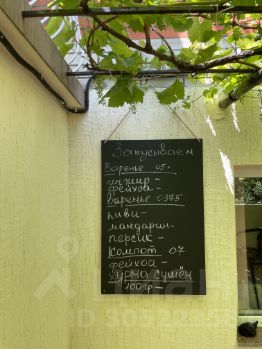 Закусываем
Варенье 0.5-
инжир-
фейхоа-
Варенье 0.375
киви-
мандарин-
персик-
Компот 0.7
фейхоа-
хурма сушён
100гр-